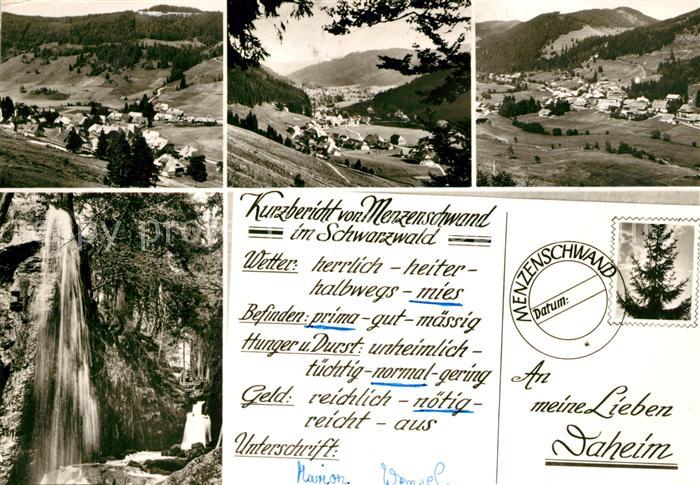 Kurzbericht von Menzenschwand
im Schwarzwald
Wetter: herrlich - heiter -
halbwegs - mies
Befinden: prima - gut - mässig
Hunger u. Durst: unheimlich -
tüchtig - normal - gering
Geld: reichlich - nötig -
reicht - aus
Unterschrift:
Marion
MENZENSCHWAND
Datum:
An
meine Lieben
Daheim